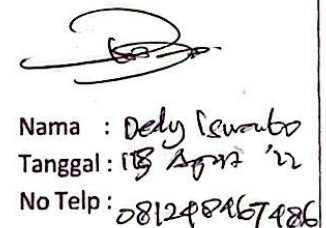 Nama : Dedy Iswanto
Tanggal : 18 Agust '22
No Telp : 081248467486